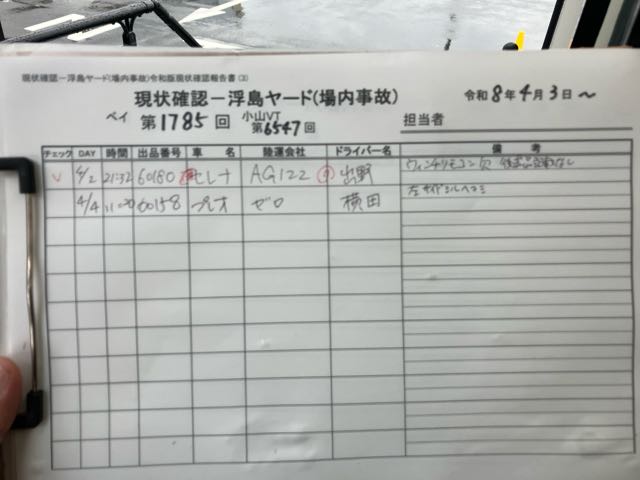 現状確認－浮島ヤード(場内事故)令和版現状確認報告書(3)
現状確認－浮島ヤード(場内事故)
令和8年4月3日～
ベイ 第1785回 小山VT 第6547回 担当者
チェック DAY 時間 出品番号 車 名 陸運会社 ドライバー名 備 考
✓ 4/2 21:32 60180 セレナ AG122 出野 ウィンチリモコン欠
4/4 11:00 60158 プレオ ゼロ 横田 左サイドシルヘコミ